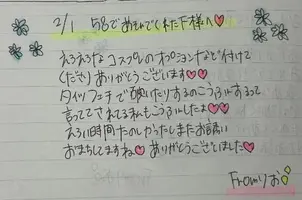 2/1 58であそんでくれたF様へ♡
えろえろな コスプレの オプションなど付けて
くださり ありがとうございます♡♡
タイツフェチで 破いたりするのこうふんするって
言っててされてる私もこうふんしたよ♡♡
えろい時間たのしかったしまたお誘い
おまちしてますね♡ ありがとうございました♡
Fromりお